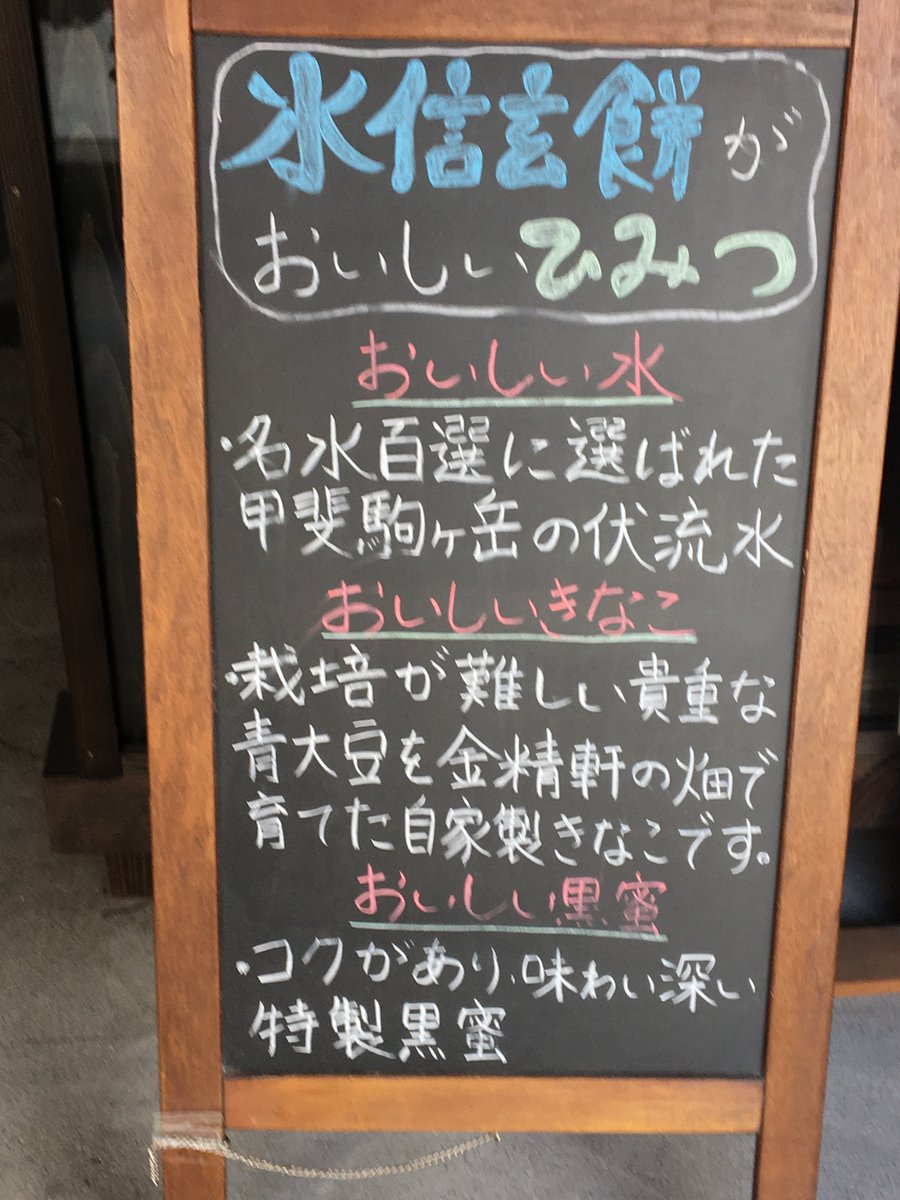 水信玄餅が
おいしいひみつ
おいしい水
・名水百選に選ばれた
甲斐駒ヶ岳の伏流水
おいしいきなこ
・栽培が難しい貴重な
青大豆を金精軒の畑で
育てた自家製きなこです。
おいしい黒蜜
・コクがあり、味わい深い
特製黒蜜